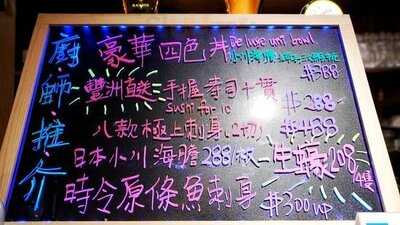 廚師推介
豪華四色丼 Deluxe uni bowl
$388
豐洲直送 手握壽司十貫 $288
Sushi for 10
八款極上刺身(2切) $488
日本小川海膽288/板 生蠔208/4隻
時令原條魚刺身 $300up